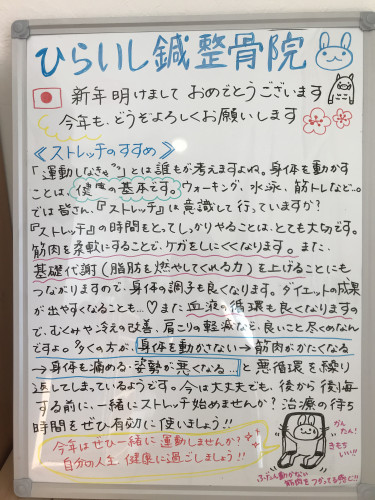 ひらいし鍼整骨院
新年明けまして おめでとうございます
今年も、どうぞよろしくお願いします
《ストレッチのすすめ》
「運動しなきゃ💦」とは誰もが考えますよね。身体を動かす
ことは、健康の基本です。ウォーキング、水泳、筋トレなど…。
では皆さん、『ストレッチ』は意識して行っていますか?
『ストレッチ』の時間をとってしっかりやることは、とても大切です。
筋肉を柔軟にすることで、ケガをしにくくなります。また、
基礎代謝(脂肪を燃やしてくれる力)を上げることにも
つながりますので、身体の調子も良くなります。ダイエットの成果
が出やすくなることも…♡また血液の循環も良くなりますの
で、むくみや冷えの改善、肩こりの軽減など、良いこと尽くめなん
ですよ。多くの方が、身体を動かさない→筋肉がかたくなる
→身体を痛める・姿勢が悪くなる…と悪循環を繰り
返してしまっているようです。今は大丈夫でも、後から後悔
する前に、一緒にストレッチ始めませんか?治療の待ち
時間をぜひ有効に使いましょう!!
今年はぜひ一緒に運動しませんか?
自分の人生、健康に過ごしましょう!!
かんたん!
きもちいい!!
ふだん動かない
筋肉をつかってる感じ!!